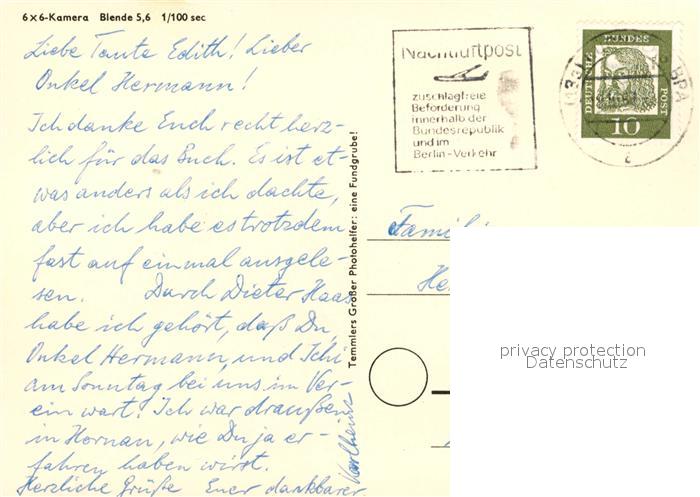 6×6-Kamera Blende 5,6 1/100 sec
Liebe Tante Edith! Lieber
Onkel Hermann!
Ich danke Euch recht herz-
lich für das Buch. Es ist et-
was anders als ich dachte,
aber ich habe es trotzdem
fast auf einmal ausgele-
sen. Durch Dieter Haas
habe ich gehört, daß Du,
Onkel Hermann, und
am Sonntag bei uns im Ver-
ein wart. Ich war draußen
in Hornau, wie Du ja er-
fahren haben wirst.
Herzliche Grüße Euer dankbarer
Karlheinz
Temmlers Großer Photohelfer: eine Fundgrube!
Nachtluftpost
zuschlagfreie
Beförderung
innerhalb der
Bundesrepublik
und im
Berlin-Verkehr
DEUTSCHE
BUNDES
POST
10
BPA
c
Famili
He
privacy protection
Datenschutz